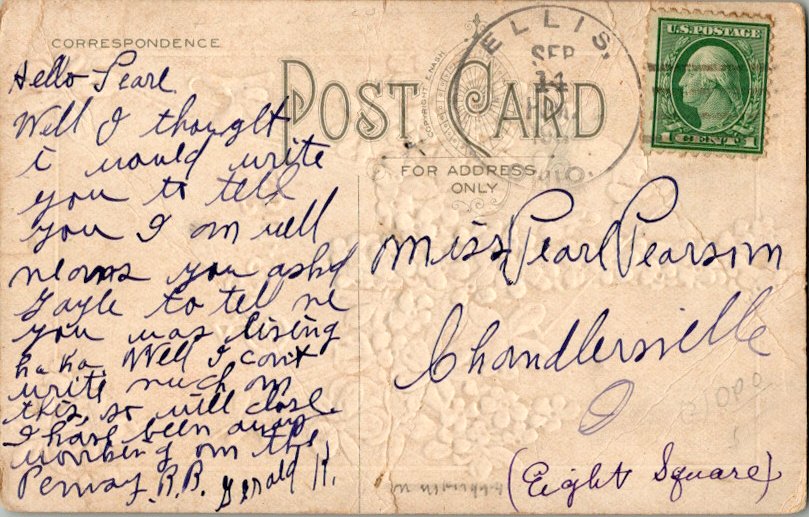 CORRESPONDENCE
Hello Pearl
Well I thought
i would write
you to tell
you I am well
you askd
Gayle to tell me
you was living
ha ha. Well I can't
write much on
this, so will close.
I have been away
working on the
R.R. Gerald K.
POST CARD
COPYRIGHT E. NASH
FOR ADDRESS
ONLY
ELLIS,
SEP
11
O.
U.S. POSTAGE
1 CENT 1
Miss Pearl Pearson
Chandlersville
O
(Eight Square)